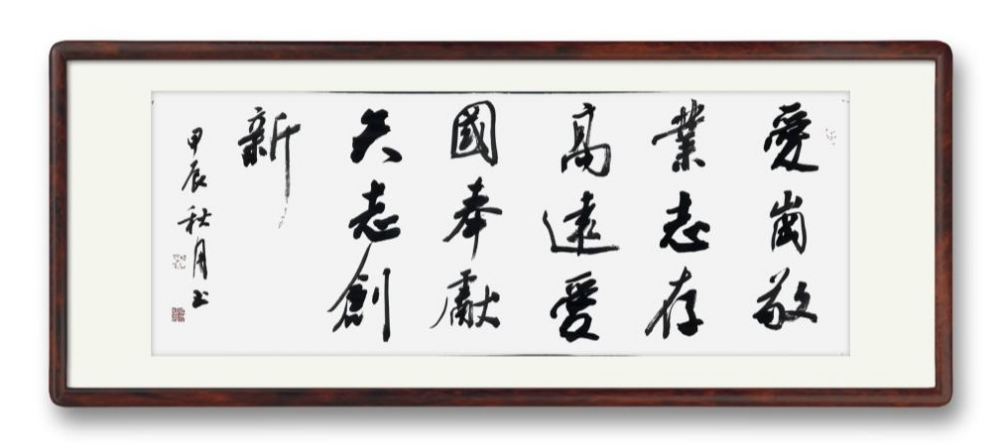 愛崗敬
業志存
高遠愛
國奉獻
矢志創
新
甲辰秋月书